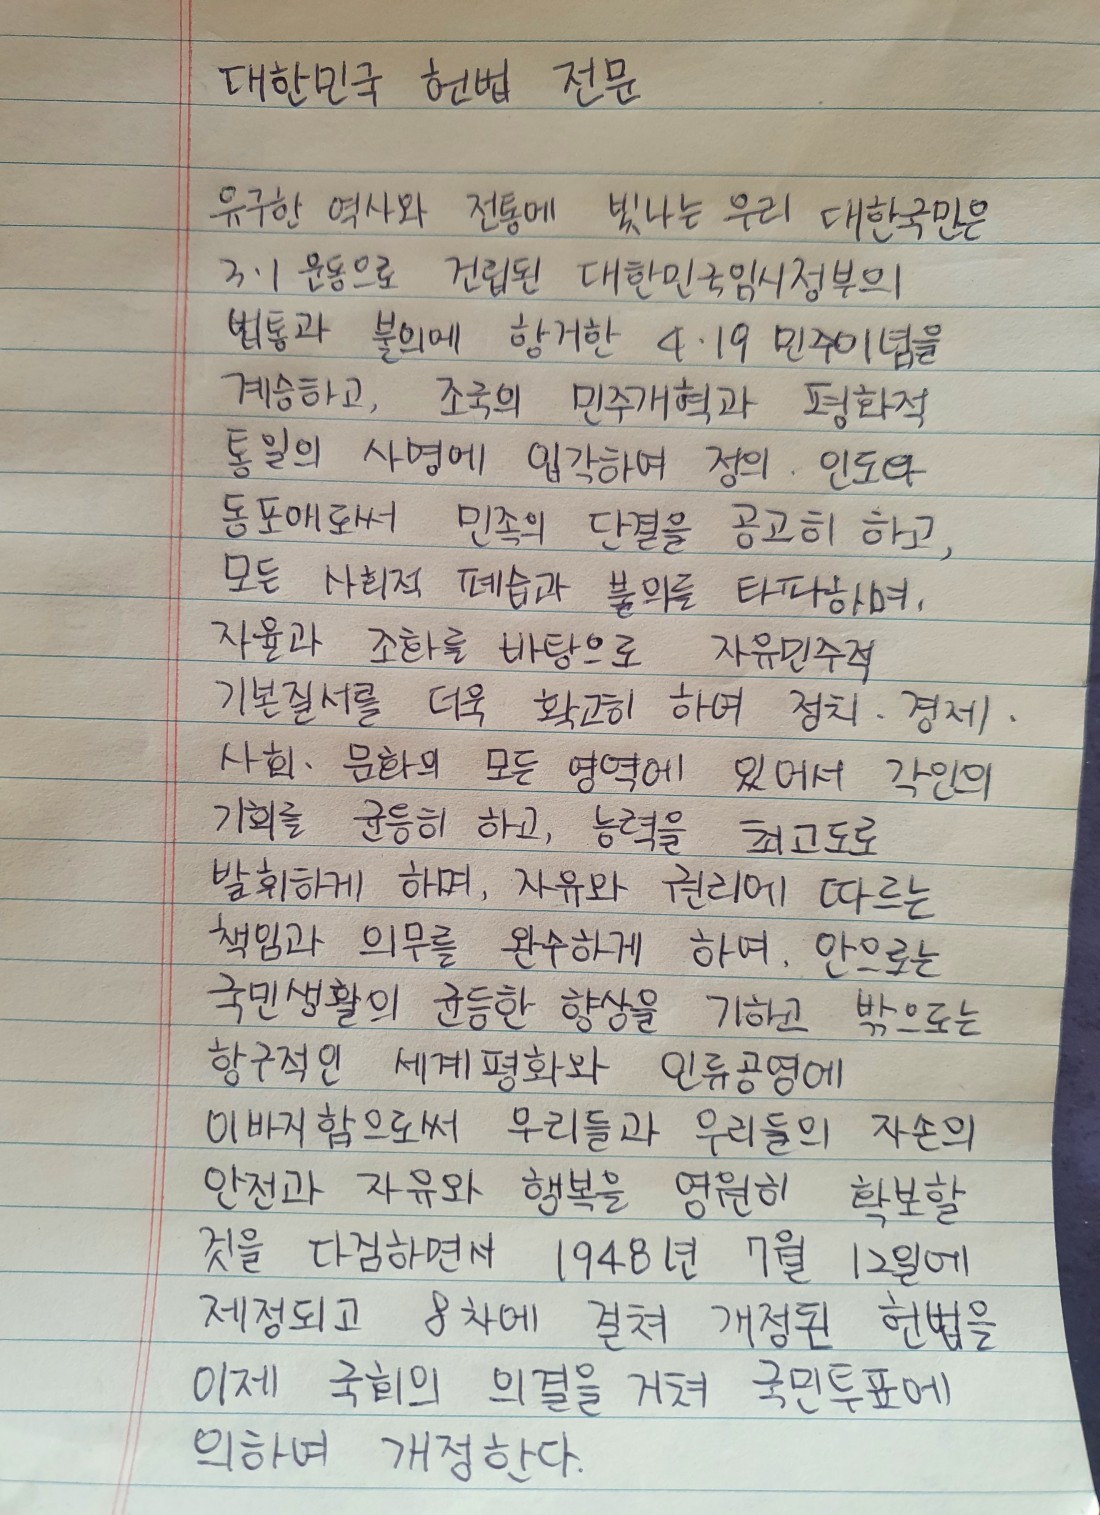 대한민국 헌법 전문
유구한 역사와 전통에 빛나는 우리 대한국민은
3·1 운동으로 건립된 대한민국임시정부의
법통과 불의에 항거한 4·19 민주이념을
계승하고, 조국의 민주개혁과 평화적
통일의 사명에 입각하여 정의·인도와
동포애로써 민족의 단결을 공고히 하고,
모든 사회적 폐습과 불의를 타파하며,
자율과 조화를 바탕으로 자유민주적
기본질서를 더욱 확고히 하여 정치·경제·
사회·문화의 모든 영역에 있어서 각인의
기회를 균등히 하고, 능력을 최고도로
발휘하게 하며, 자유와 권리에 따르는
책임과 의무를 완수하게 하여, 안으로는
국민생활의 균등한 향상을 기하고 밖으로는
항구적인 세계평화와 인류공영에
이바지함으로써 우리들과 우리들의 자손의
안전과 자유와 행복을 영원히 확보할
것을 다짐하면서 1948년 7월 12일에
제정되고 8차에 걸쳐 개정된 헌법을
이제 국회의 의결을 거쳐 국민투표에
의하여 개정한다.